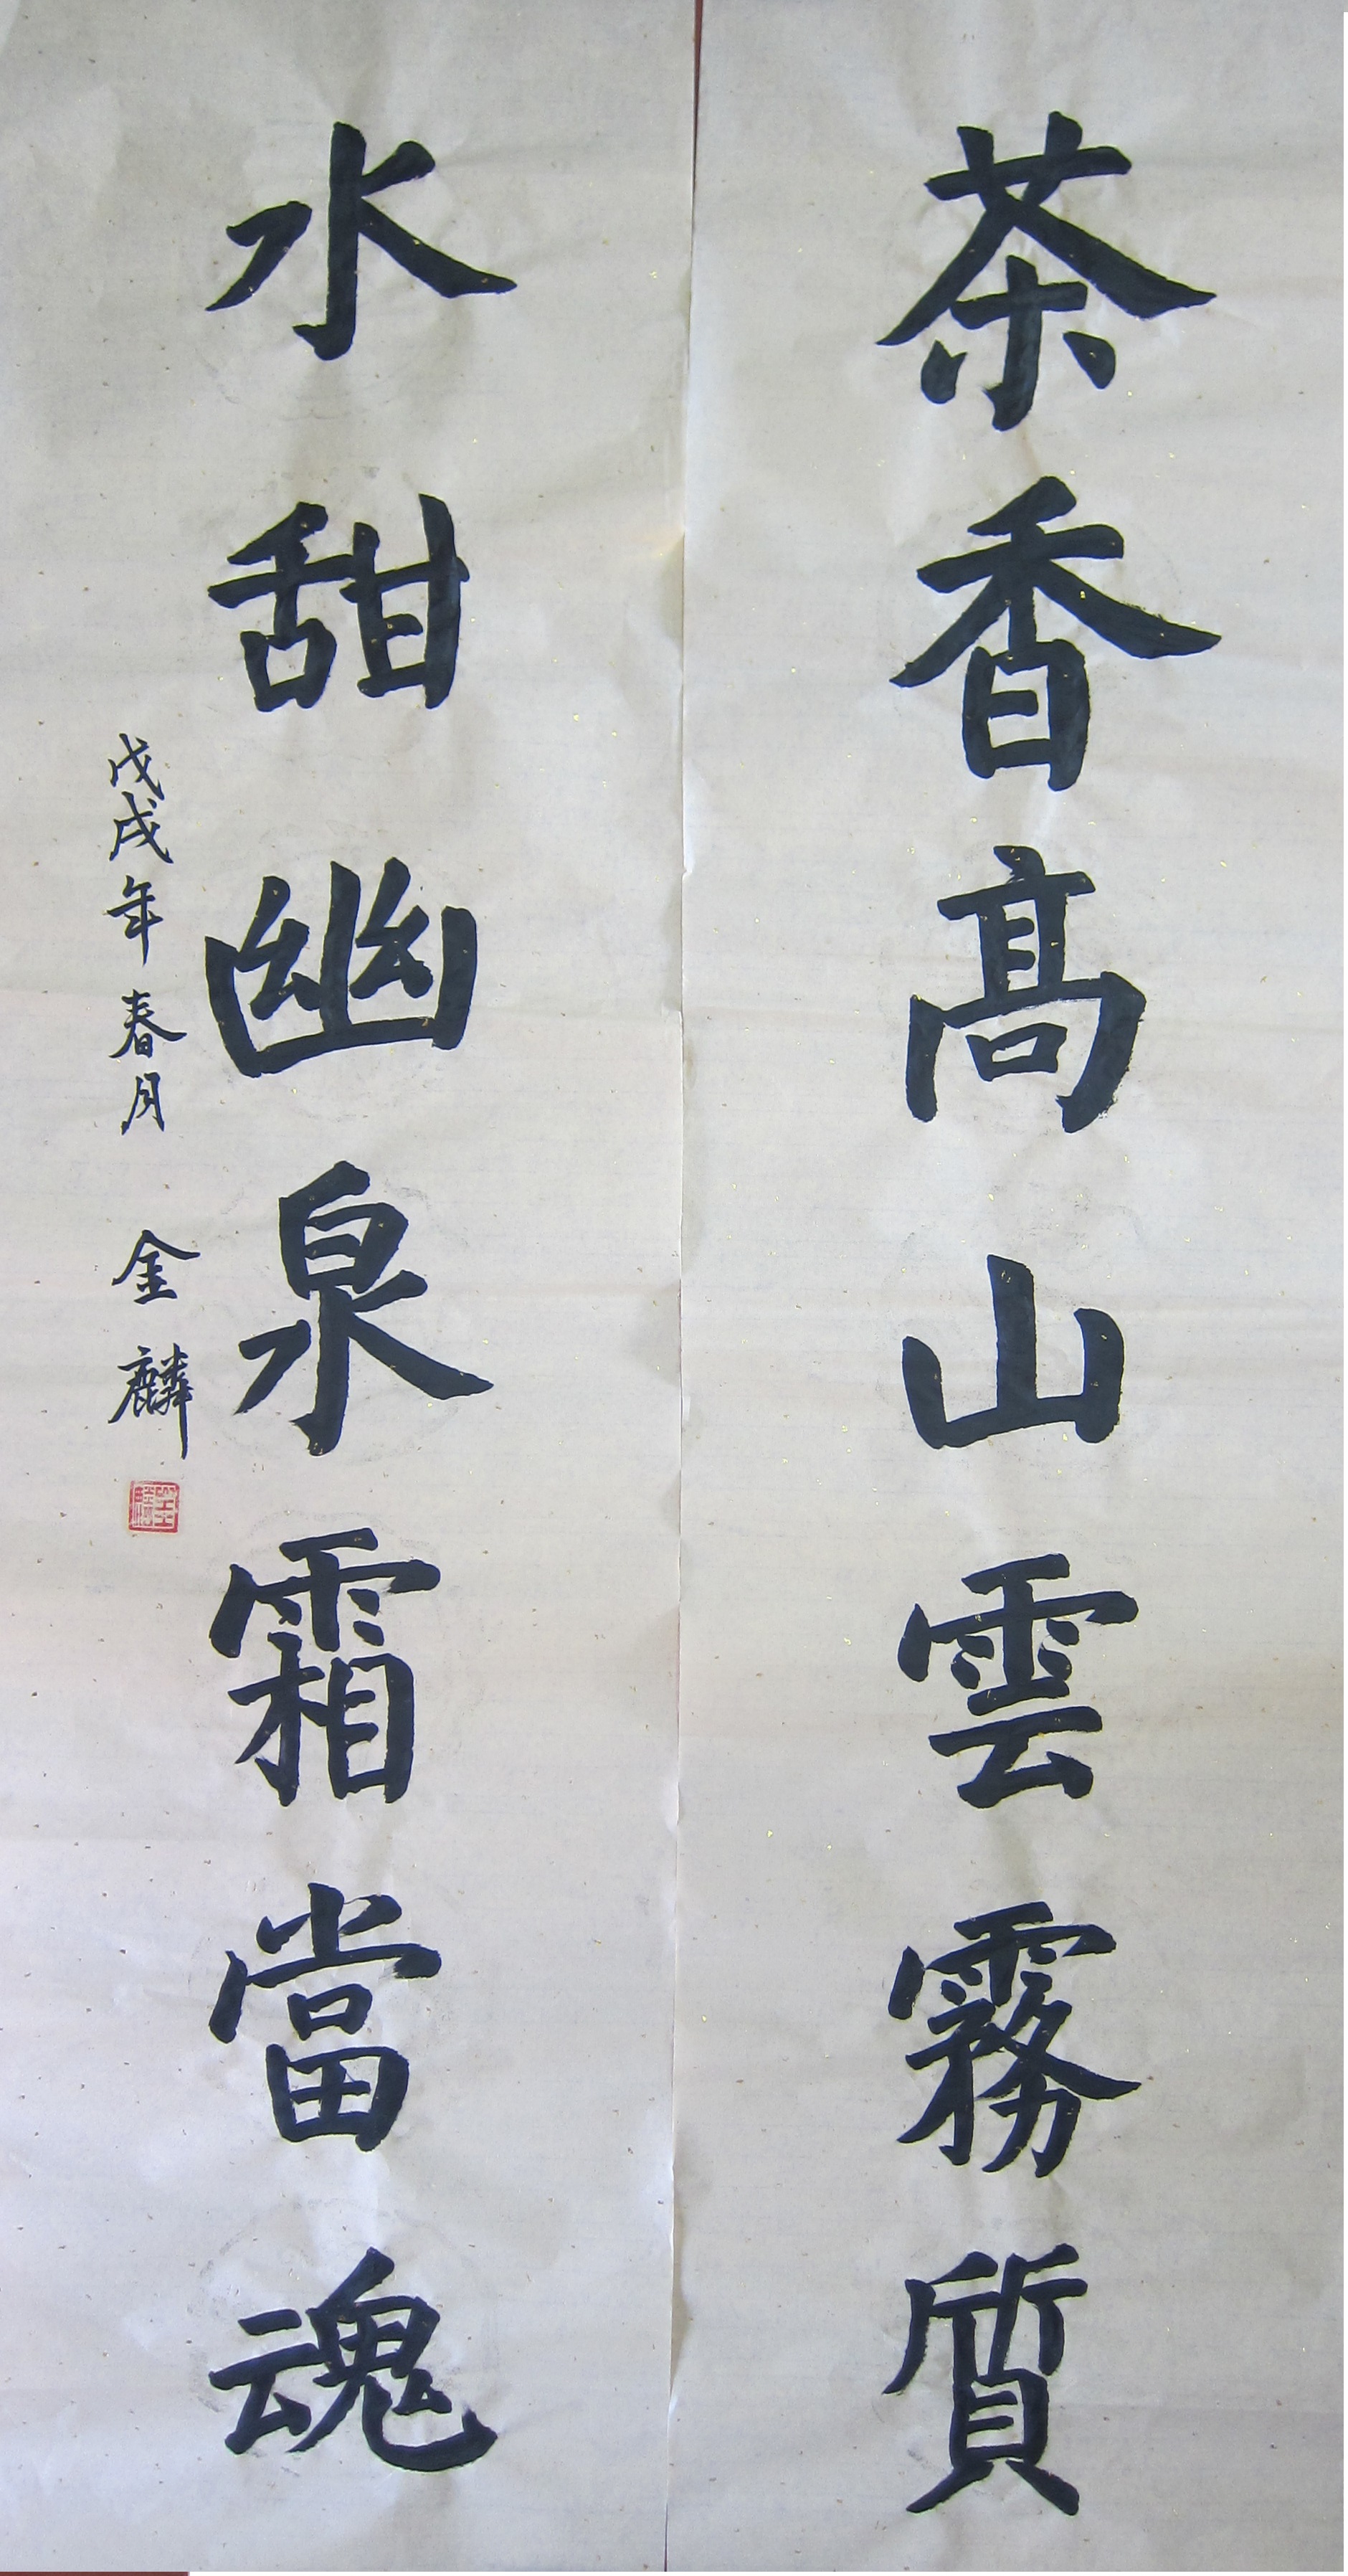 茶香髙山雲霧質
水甜幽泉霜當魂
戊戌年春月 金麟